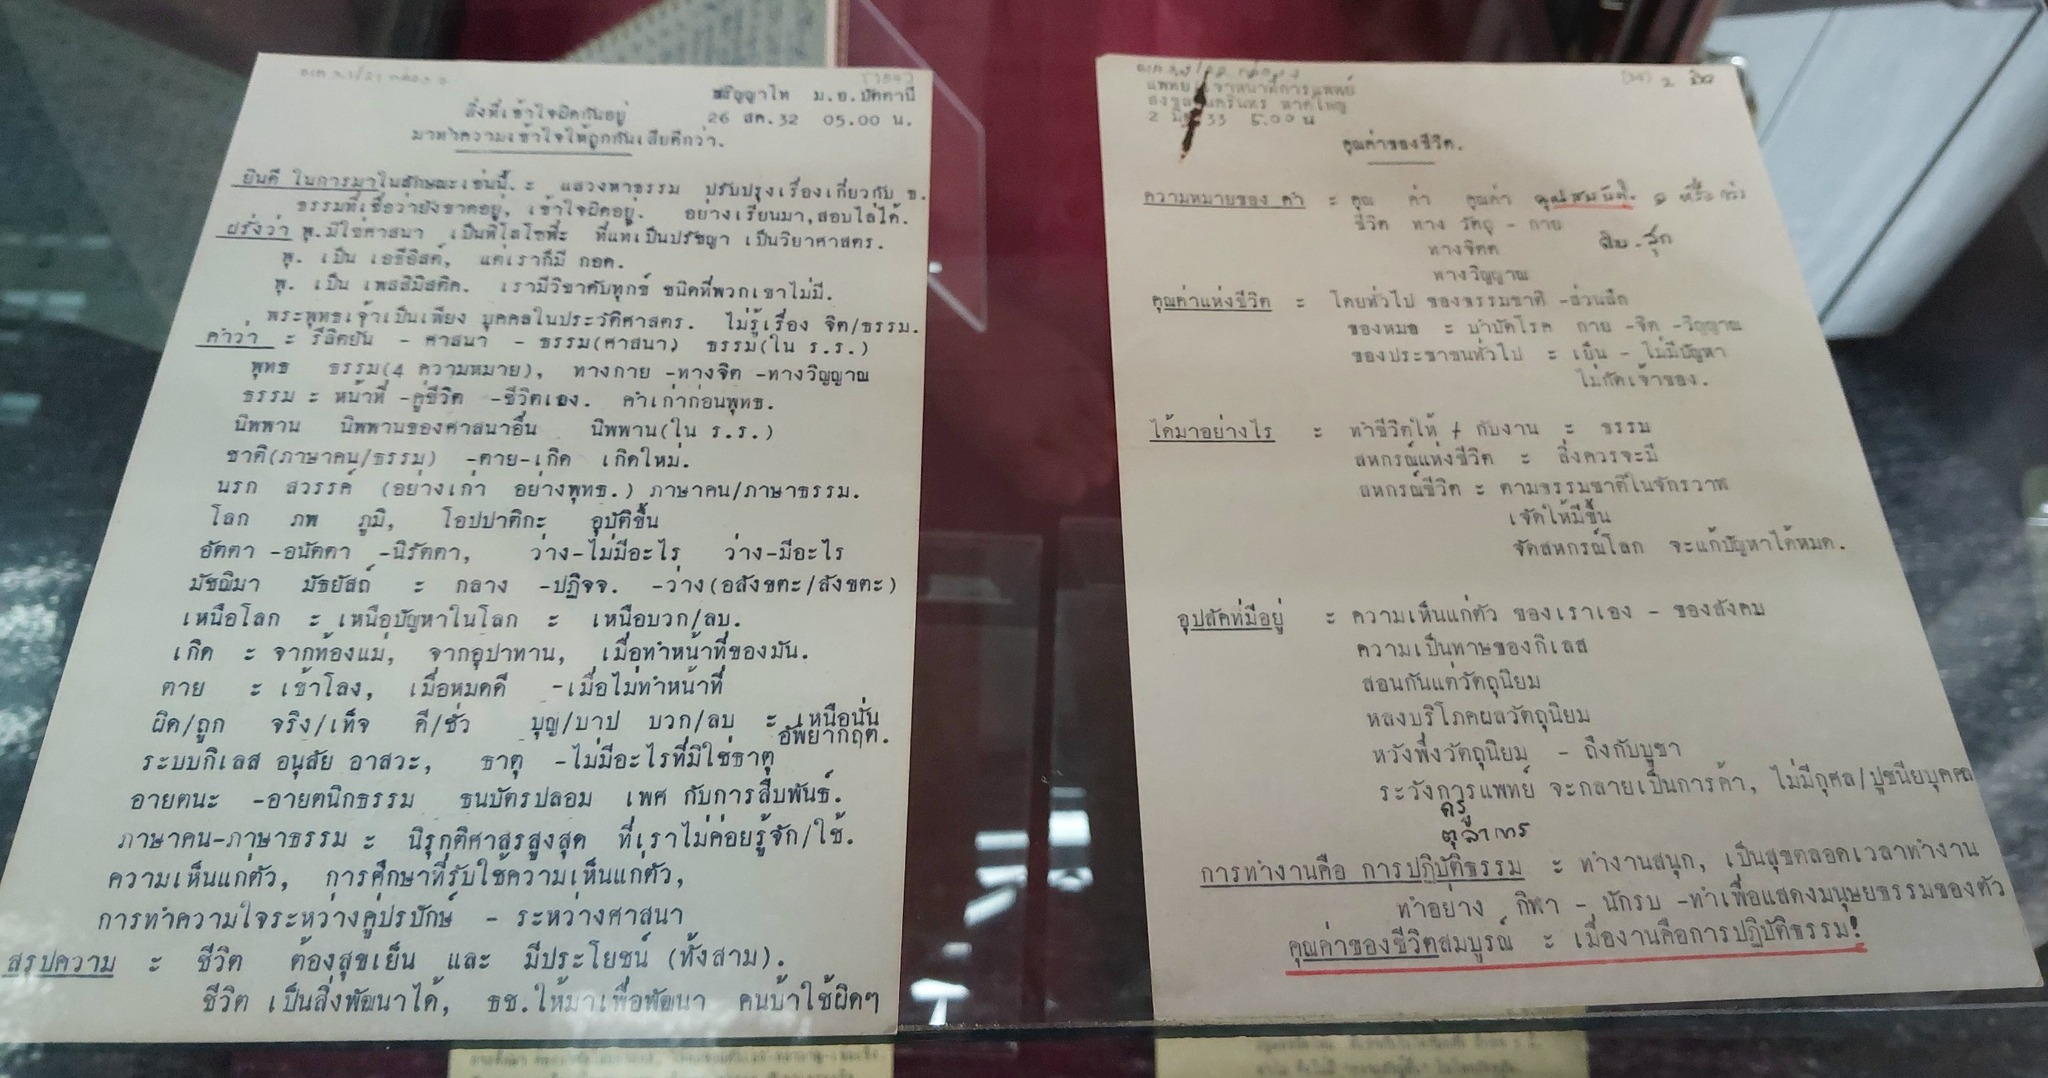 ปริญญาโท ม.อ.ปัตตานี
26 สค.32 05.00 น.
สิ่งที่เข้าใจผิดกันอยู่
มาทำความเข้าใจให้ถูกกันเสียดีกว่า.
ยินดี ในการมาในลักษณะเช่นนี้. = แสวงหาธรรม ปรับปรุงเรื่องเกี่ยวกับ ธ.
ธรรมที่เชื่อว่ายังขาดอยู่, เข้าใจผิดอยู่. อย่างเรียนมา,สอบไล่ได้.
ฝรั่งว่า พุ.มิใช่ศาสนา เป็นฟิโลโซฟี่ะ ที่แท้เป็นปรัชญา เป็นวิยาศาสตร.
พุ. เป็น เอธีอิสต์, แต่เราก็มี กอด.
พุ. เป็น เพสสิมิสติค. เรามีวิชาดับทุกข์ ชนิดที่พวกเขาไม่มี.
พระพุทธเจ้าเป็นเพียง บุคคลในประวัติศาสตร. ไม่รู้เรื่อง จิต/ธรรม.
คำว่า = รีลิตยัน - ศาสนา - ธรรม(ศาสนา) ธรรม(ใน ร.ร.)
พุทธ ธรรม(4 ความหมาย), ทางกาย -ทางจิต -ทางวิญญาณ
ธรรม = หน้าที่ -คู่ชีวิต -ชีวิตเอง. คำเก่าก่อนพุทธ.
นิพพาน นิพพานของศาสนาอื่น นิพพาน(ใน ร.ร.)
ชาติ(ภาษาคน/ธรรม) -ตาย-เกิด เกิดใหม่.
นรก สวรรค์ (อย่างเก่า อย่างพุทธ.) ภาษาคน/ภาษาธรรม.
โลก ภพ ภูมิ, โอปปาติกะ อุบัติขึ้น
อัตตา -อนัตตา -นิรัตตา, ว่าง-ไม่มีอะไร ว่าง-มีอะไร
มัชฌิมา มัธยัสถ์ = กลาง -ปฏิจจ. -ว่าง(อสังขตะ/สังขตะ)
เหนือโลก = เหนือปัญหาในโลก = เหนือบวก/ลบ.
เกิด = จากท้องแม่, จากอุปาทาน, เมื่อทำหน้าที่ของมัน.
ตาย = เข้าโลง, เมื่อหมดดี -เมื่อไม่ทำหน้าที่
ผิด/ถูก จริง/เท็จ ดี/ชั่ว บุญ/บาป บวก/ลบ = เหนือนั่น
อัพยากฤต.
ระบบกิเลส อนุสัย อาสวะ, ธาตุ -ไม่มีอะไรที่มิใช่ธาตุ
อายตนะ -อายตนิกธรรม ธนบัตรปลอม เพศ กับการสืบพันธ์.
ภาษาคน-ภาษาธรรม = นิรุกติศาสรสูงสุด ที่เราไม่ค่อยรู้จัก/ใช้.
ความเห็นแก่ตัว, การศึกษาที่รับใช้ความเห็นแก่ตัว,
การทำความใจระหว่างคู่ปรปักษ์ - ระหว่างศาสนา
สรุปความ = ชีวิต ต้องสุขเย็น และ มีประโยชน์ (ทั้งสาม).
ชีวิต เป็นสิ่งพัฒนาได้, ธช.ให้มาเพื่อพัฒนา คนบ้าใช้ผิดๆ
แพทย์ เจ้าหน้าที่การแพทย์
สงขลานครินทร หาดใหญ่
33 5.00 น
คุณค่าของชีวิต.
ความหมายของ คำ = คุณ ค่า คุณค่า คุณสมบัติ.
ชีวิต ทาง วัตถุ - กาย
ทางจิตต
ทางวิญญาณ
คุณค่าแห่งชีวิต = โดยทั่วไป ของธรรมชาติ -ส่วนลึก
ของหมอ = บำบัดโรค กาย -จิต -วิญญาณ
ของประชาชนทั่วไป = เย็น - ไม่มีปัญหา
ไม่กัดเจ้าของ.
ได้มาอย่างไร = ทำชีวิตให้ + กับงาน = ธรรม
สหกรณ์แห่งชีวิต = สิ่งควรจะมี
สหกรณ์ชีวิต = ตามธรรมชาติในจักรวาฬ
เจัดให้มีขึ้น
จัดสหกรณ์โลก จะแก้ปัญหาได้หมด.
อุปสัคที่มีอยู่ = ความเห็นแก่ตัว ของเราเอง - ของสังคม
ความเป็นทาษของกิเลส
สอนกันแต่วัตถุนิยม
หลงบริโภคผลวัตถุนิยม
หวังพึ่งวัตถุนิยม - ถึงกับบูชา
ระวังการแพทย์ จะกลายเป็นการค้า, ไม่มีกุศล/ปูชนียบุคคล
ครู
ตุลาการ
การทำงานคือ การปฏิบัติธรรม = ทำงานสนุก, เป็นสุขตลอดเวลาทำงาน
ทำอย่าง กีฬา - นักรบ -ทำเพื่อแสดงมนุษยธรรมของตัว
คุณค่าของชีวิตสมบูรณ์ = เมื่องานคือการปฏิบัติธรรม!